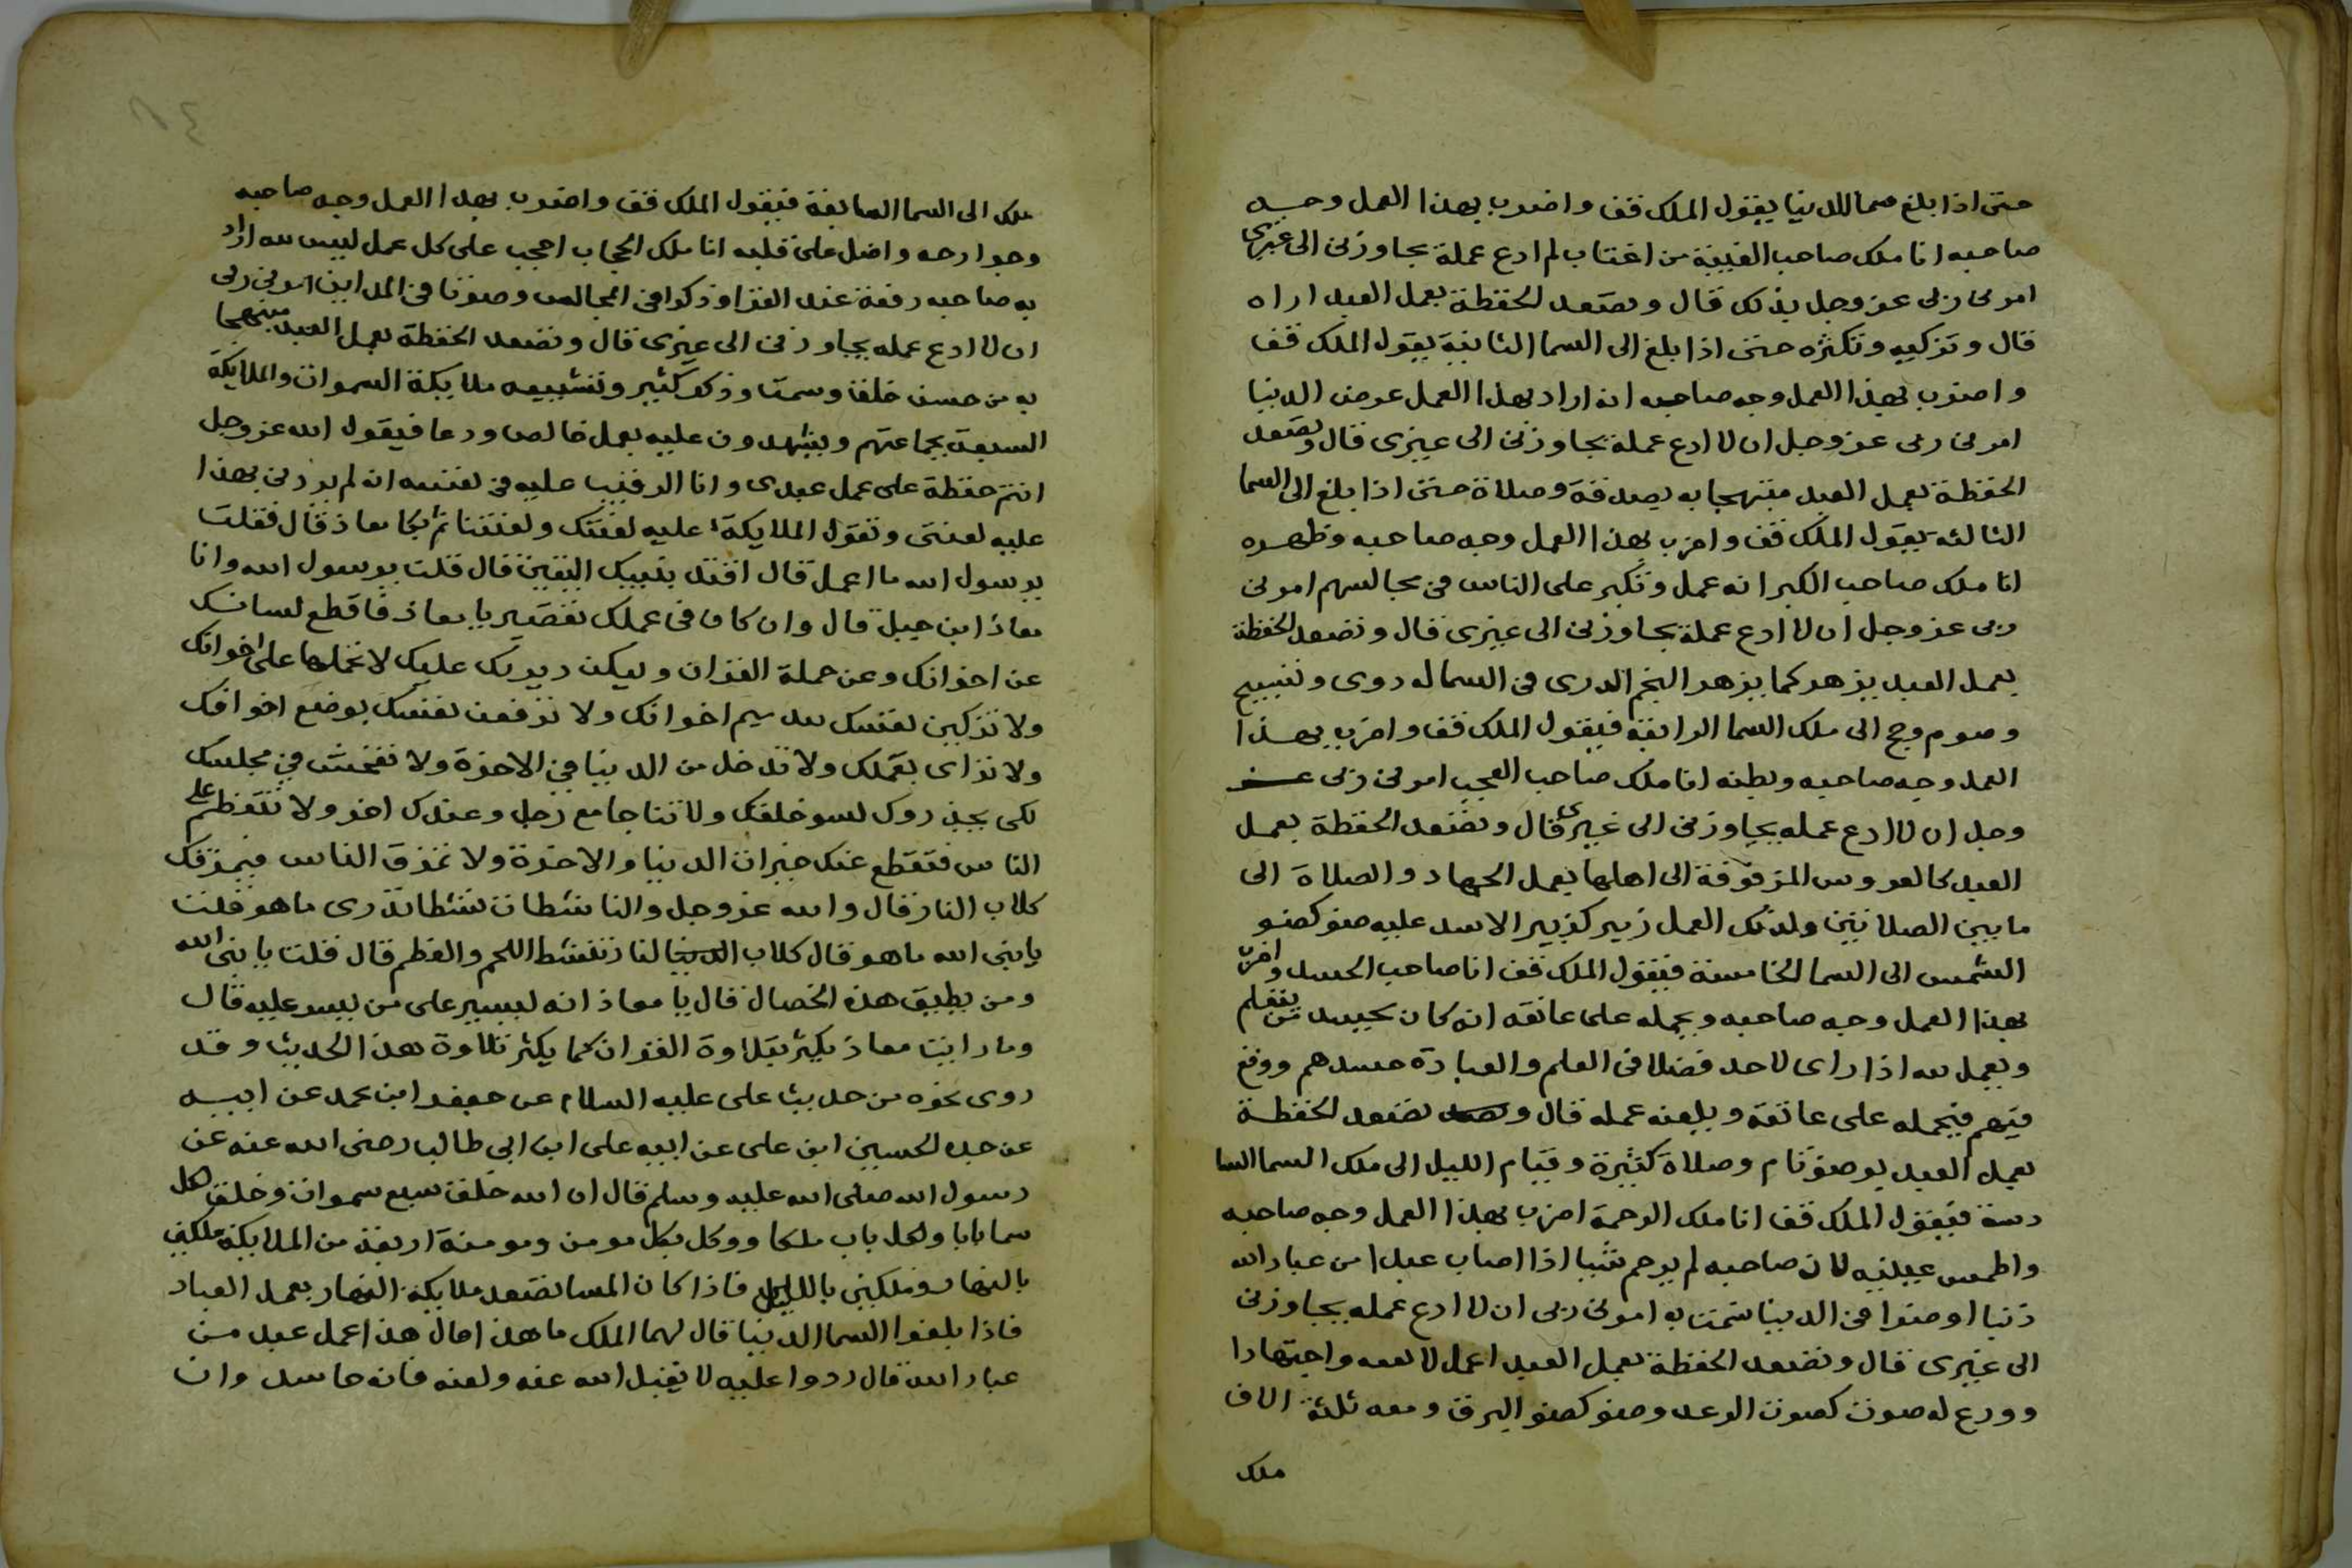 حتى اذا بلغ سما الدنيا يقول الملك قف واضرب بهذا العمل وجه
صاحبه انا ملك صاحب الغيبة من اغتاب لم ادع عملة يجاوزنى الى غيرى
امرنى ربى عز وجل بذلك قال وتصعد الحفظة بعمل العبد اراه
قال وتزكيه وتكثره حتى اذا بلغ الى السما الثانية يقول الملك قف
واضرب بهذا العمل وجه صاحبه انه اراد بهذا العمل عرض الدنيا
امرنى ربى عز وجل ان لا ادع عملة يجاوزنى الى غيرى قال وتصعد
الحفظة بعمل العبد مبتهجا به بصدقة وصلاة حتى اذا بلغ الى السما
الثالثه يقول الملك قف واضرب بهذا العمل وجه صاحبه وظهره
انا ملك صاحب الكبر انه عمل وتكبر على الناس فى مجالسهم امرنى
ربى عز وجل ان لا ادع عملة يجاوزنى الى غيرى قال وتصعد الحفظة
بعمل العبد يزهر كما يزهر النجم الدرى فى السما له دوى وتسبيح
وصوم وحج الى ملك السما الرابعة فيقول الملك قف واضرب بهذا
العمل وجه صاحبه وبطنه انا ملك صاحب العجب امرنى ربى عز
وجل ان لا ادع عمله يجاوزنى الى غيرى قال وتصعد الحفظة بعمل
العبد كالعروس المزفوفة الى اهلها بعمل الجهاد والصلاة الى
ما بين الصلاتين ولذلك العمل زبير كزبير الاسد عليه ضو كضو
الشمس الى السما الخامسة فيقول الملك قف انا صاحب الحسد واضرب
بهذا العمل وجه صاحبه ويحمله على عاتقه انه كان يحسد من يتعلم
ويعمل لله اذا راى لاحد فضلا فى العلم والعبادة حسدهم ووقع
فيهم فيحمله على عاتقة ويلعنه عمله قال وتصعد الحفظة
بعمل العبد بوضو تام وصلاة كثيرة وقيام الليل الى ملك السما السا
دسة فيقول الملك قف انا ملك الرحمة اضرب بهذا العمل وجه صاحبه
واطمس عينيه لان صاحبه لم يرحم شيا اذا اصاب عبدا من عباد الله
ذنبا او ضرا فى الدنيا شمت به امرنى ربى ان لا ادع عمله يجاوزنى
الى غيرى قال وتصعد الحفظة بعمل العبد اعمل واجتهادا
وورع له صوت كصوت الرعد وضو كضو البرق ومعه ثلثة الاف
ملك
ملك الى السما السابعة فيقول الملك قف واضرب بهذا العمل وجه صاحبه
وجوارحه واقفل على قلبه انا ملك الحجاب احجب على كل عمل ليس لله اراد
به صاحبه رفعة عند القرا وذكرا فى المجالس وصوتا فى المداين امرنى ربى
ان لا ادع عمله يجاوزنى الى غيرى قال وتصعد الحفظة بعمل العبد مبتهجا
به من حسن خلق وسمت وذكر كثير وتشيعه ملايكة السموات والملايكة
السبعة بجماعتهم ويشهدون عليه بعمل خالص ودعا فيقول الله عز وجل
انتم حفظة على عمل عبدى وانا الرقيب عليه فى نفسه انه لم يردنى بهذا
عليه لعنتى وتقول الملايكة عليه لعنتك ولعنتنا ثم بكا معاذ قال فقلت
يرسول الله ما اعمل قال اقتد بنبيك اليقين قال قلت يرسول الله وانا
معاذ ابن جبل قال وان كان فى عملك تقصير يا معاذ فاقطع لسانك
عن اخوانك وعن حملة القران وليكن عليك لا تحملها على اخوانك
ولا تزكين نفسك اخوانك ولا ترفعن نفسك بوضع اخوانك
ولا تراى بعملك ولا تدخل من الدنيا فى الاخرة ولا تفحش فى مجلسك
لكى يحذروك لسو خلقك ولا تتناجا مع رجل وعندك اخر ولا تتعظم على
الناس فتقطع عنك خيرات الدنيا والاخرة ولا تمزق الناس فيمزقك
كلاب النار قال والله عز وجل والناشطات نشطا تدرى ما هو قلت
يا نبى الله ما هو قال كلاب النار تنشط اللحم والعظم قال قلت يا نبى الله
ومن يطيق هذه الخصال قال يا معاذ انه ليسير على من يسر عليه قال
وما رايت معاذ يكثر تلاوة القران كما يكثر تلاوة هذا الحديث وقد
روى نحوه من حديث على عليه السلام عن جعفر ابن محمد عن ابيه
عن جده الحسين ابن على عن ابيه على ابن ابى طالب رضى الله عنه عن
رسول الله صلى الله عليه وسلم قال ان الله خلق سبع سموات وخلق لكل
سما بابا ولكل باب ملكا ووكل بكل مومن ومومنة اربعة من الملايكة ملكين
بالنهار وملكين بالليل فاذا كان المسا تصعد ملايكة النهار بعمل العباد
فاذا بلغوا السما الدنيا قال لهما الملك ما هذا قال هذا عمل عبد من
عباد الله قال ردوا عليه لا يقبل الله عنه ولعنه فانه حاسد وان